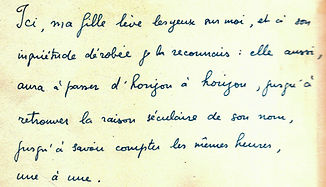 Ici, ma fille lève les yeux sur moi, et à son
inquiétude dérobée je la reconnais : elle aussi,
aura à passer d'horizon à horizon, jusqu'à
retrouver la raison séculaire de son nom,
jusqu'à savoir compter les mêmes heures,
une à une.